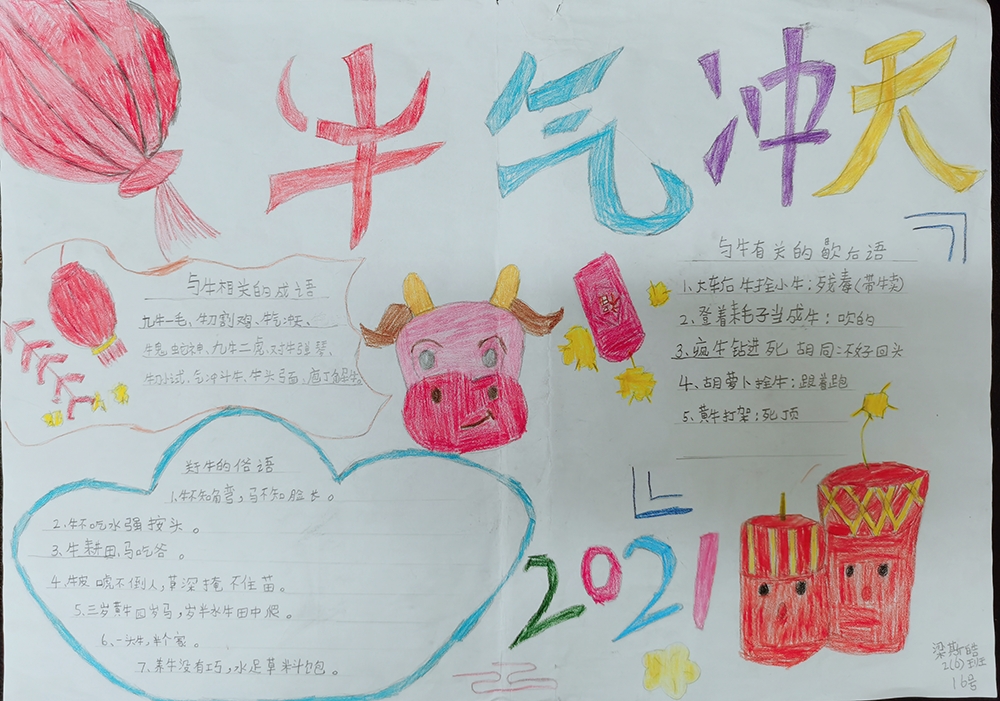 牛气冲天
与牛相关的成语
九牛一毛、牛刀割鸡、牛气冲天、
牛鬼蛇神、九牛二虎、对牛弹琴、
牛刀小试、气冲斗牛、牛头马面、庖丁解牛
与牛有关的歇后语
1、大车后牛拴小牛：残毒(带牛卖)
2、登着耗子当成牛：吹的
3、疯牛钻进死胡同：不好回头
4、胡萝卜拴牛：跟着跑
5、黄牛打架：死顶
牛的俗语
1、牛不知角弯，马不知脸长。
2、牛不吃水强按头。
3、牛耕田、马吃谷。
4、牛皮唬不倒人，草深掩不住苗。
5、三岁黄牛四岁马，岁半水牛田中爬。
6、一头牛，半个家。
7、养牛没有巧，水足草料饱。
2021
梁斯皓
2(6)班
16号